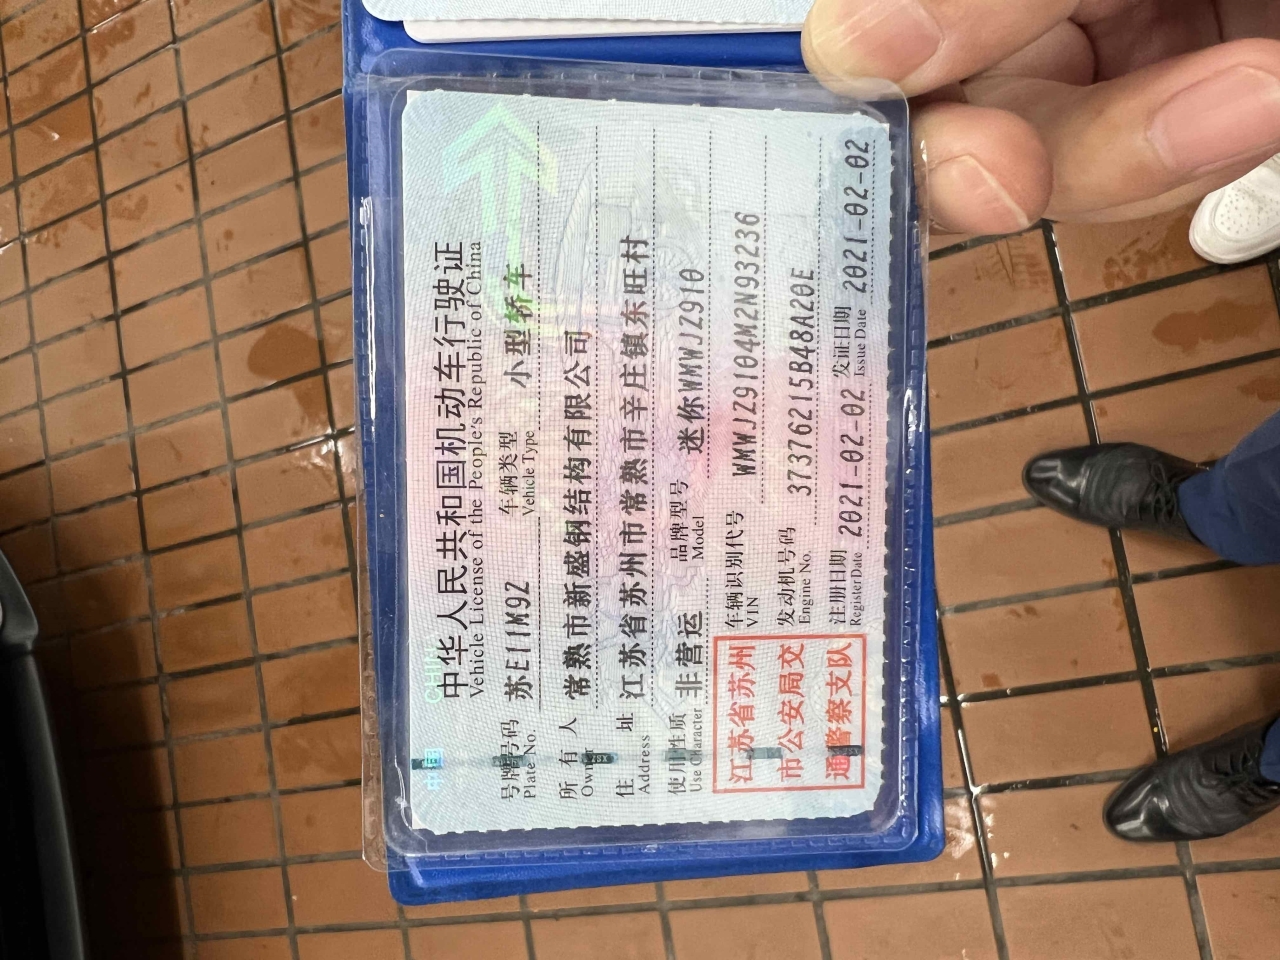 中华人民共和国机动车行驶证
Vehicle License of the People's Republic of China
号牌号码 苏E11M9Z 车辆类型 小型轿车
Plate No. Vehicle Type
所有人 常熟市新盛钢结构有限公司
Owner
住址 江苏省苏州市常熟市辛庄镇东旺村
Address
使用性质 非营运 品牌型号 迷你WMWJZ910
Use Character Model
江苏省苏州
市公安局交
通警察支队
车辆识别代号 WMWJZ9104M2N93236
VIN
发动机号码 37376215B48A20E
Engine No.
注册日期 2021-02-02 发证日期 2021-02-02
Register Date Issue Date
中国